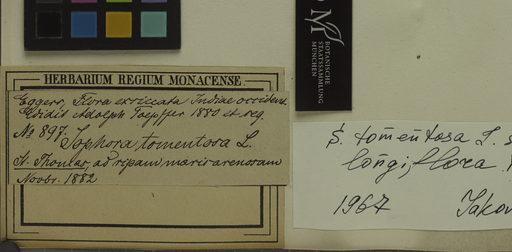 M
BOTANISCHE
STAATSSAMMLUNG
MÜNCHEN
HERBARIUM REGIUM MONACENSE.
Eggers, Flora exsiccata Indiae occident.
Edidit Adolph Toepffer 1880 et seq.
No 897. Sophora tomentosa L.
St. Thomas, ad ripam maris arenosam
Novbr. 1882
S. tomentosa L. s
longiflora
1967 Jakov